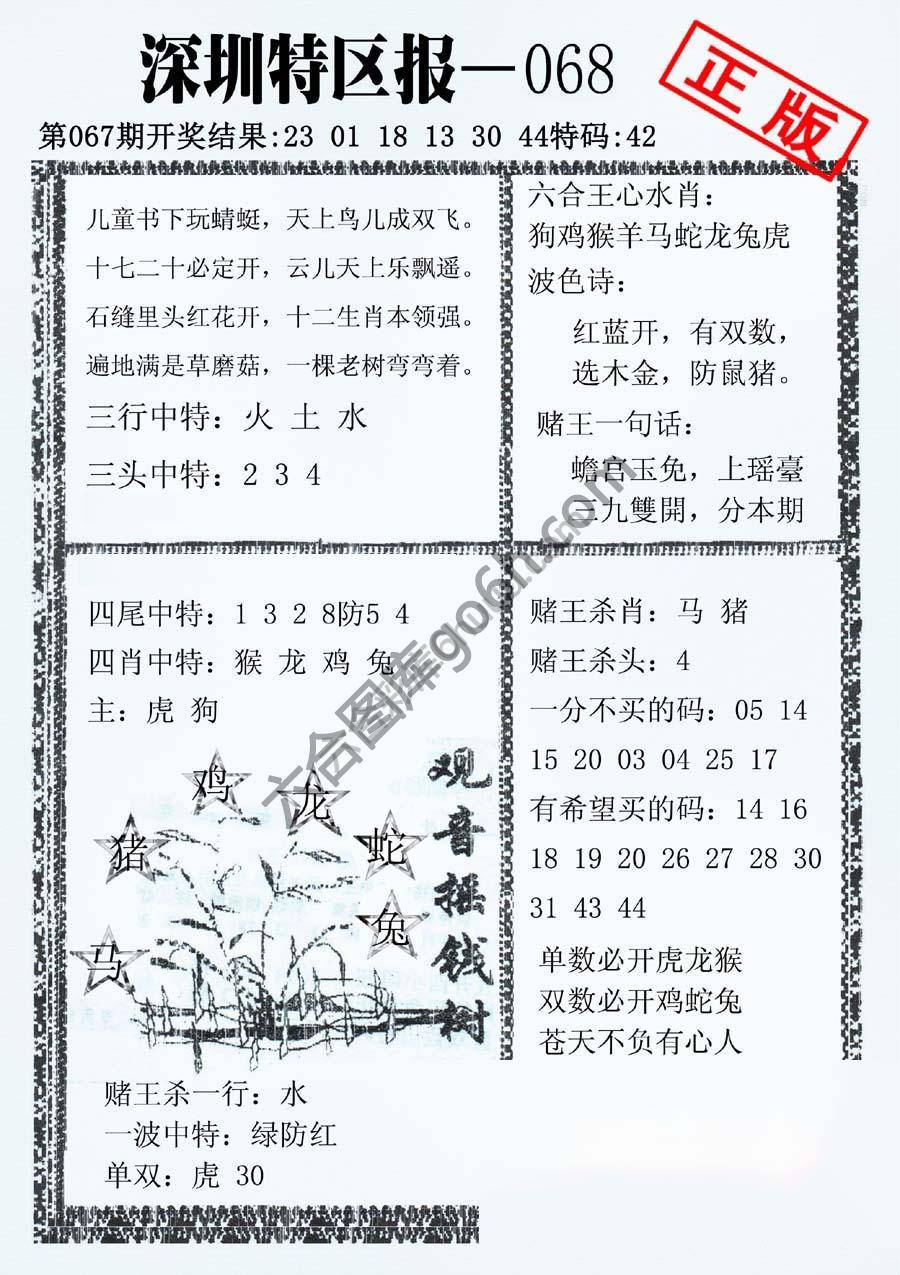 深圳特区报—068
正版
第067期开奖结果:23 01 18 13 30 44特码:42
儿童书下玩蜻蜓，天上鸟儿成双飞。
十七二十必定开，云儿天上乐飘遥。
石缝里头红花开，十二生肖本领强。
遍地满是草磨菇，一棵老树弯弯着。
三行中特：火 土 水
三头中特：2 3 4
六合王心水肖：
狗鸡猴羊马蛇龙兔虎
波色诗：
红蓝开，有双数，
选木金，防鼠猪。
赌王一句话：
蟾宫玉免，上瑶臺
三九雙開，分本期
四尾中特：1 3 2 8防5 4
四肖中特：猴 龙 鸡 兔
主：虎 狗
鸡
龙
猪
蛇
兔
马
观音摇钱树
赌王杀一行：水
一波中特：绿防红
单双：虎 30
赌王杀肖：马 猪
赌王杀头：4
一分不买的码：05 14
15 20 03 04 25 17
有希望买的码：14 16
18 19 20 26 27 28 30
31 43 44
单数必开虎龙猴
双数必开鸡蛇兔
苍天不负有心人
六合图库go6h.com